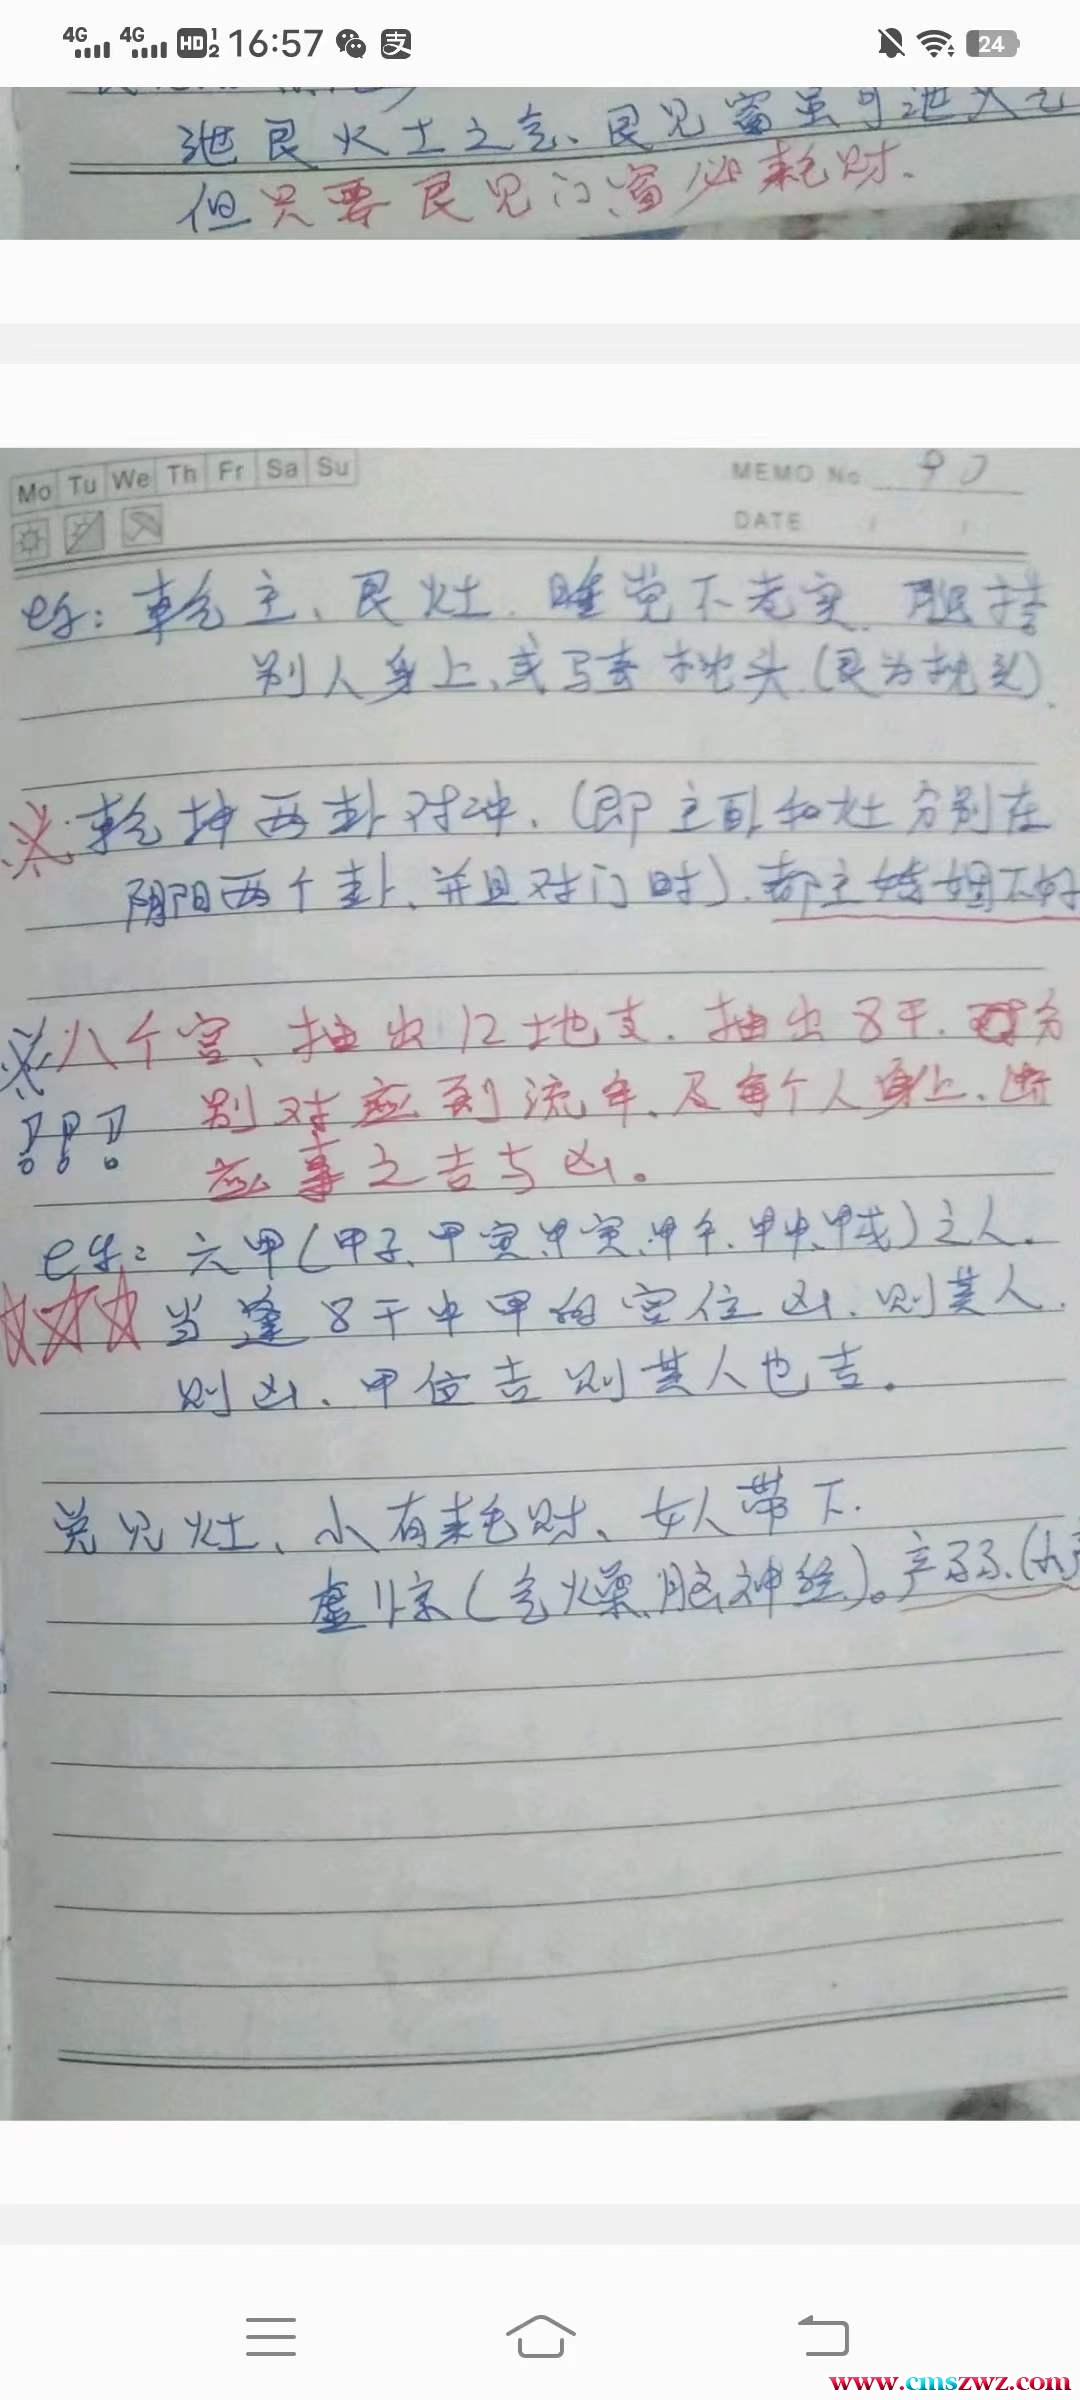 4G 4G HD 1 2 16:57 支 24
泄艮火土之气、艮见窗虽可泄火气
但只要艮见门、窗必耗财、
Mo Tu We Th Fr Sa Su
MEMO No 90
DATE / /
eg: 乾主、艮灶. 睡觉不老实. 腿搭
别人身上、或骑枕头.(艮为枕头).
※.乾坤两卦对冲.(即主卧和灶分别在
阴阳两个卦、并且对门时).都主婚姻不好
※八个宫、抽出12地支. 抽出8干. 分
!!! 别对应到流年、及每个人身上、断
应事之吉与凶。
eg: 六甲(甲子、甲寅、甲寅、甲午、甲申、甲戌)之人.
☆☆☆ 当逢8干中甲的宫位凶、则其人.
则凶、甲位吉则其人也吉。
兑见灶、小有耗财、女人带下.
虚惊(气燥、脑神经)。产
www.cmszwz.com